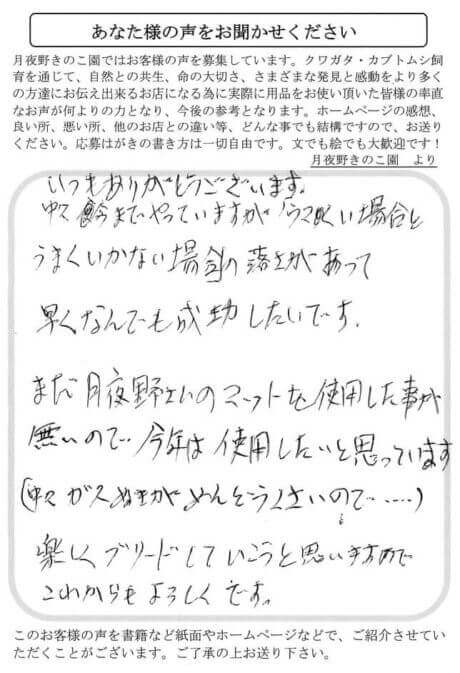 あなた様の声をお聞かせください
月夜野きのこ園ではお客様の声を募集しています。クワガタ・カブトムシ飼
育を通じて、自然との共生、命の大切さ、さまざまな発見と感動をより多く
の方達にお伝え出来るお店になる為に実際に用品をお使い頂いた皆様の率直
なお声が何よりの力となり、今後の参考となります。ホームページの感想、
良い所、悪い所、他のお店との違い等、どんな事でも結構ですので、お送り
ください。応募はがきの書き方は一切自由です。文でも絵でも大歓迎です！
月夜野きのこ園　より
いつもありがとうございます。
中々 までやっていますが うまくいく場合と
うまくいかない場合の落さがあって
早くなんでも成功したいです。
まだ月夜野さんのマットを使用した事が
無いので、今年は使用したいと思っています
(中々ガスぬきがめんどうくさいので‥‥‥)
楽しくブリードしていこうと思いますので
これからもよろしくです。
このお客様の声を書籍など紙面やホームページなどで、ご紹介させてい
ただくことがございます。ご了承の上お送り下さい。